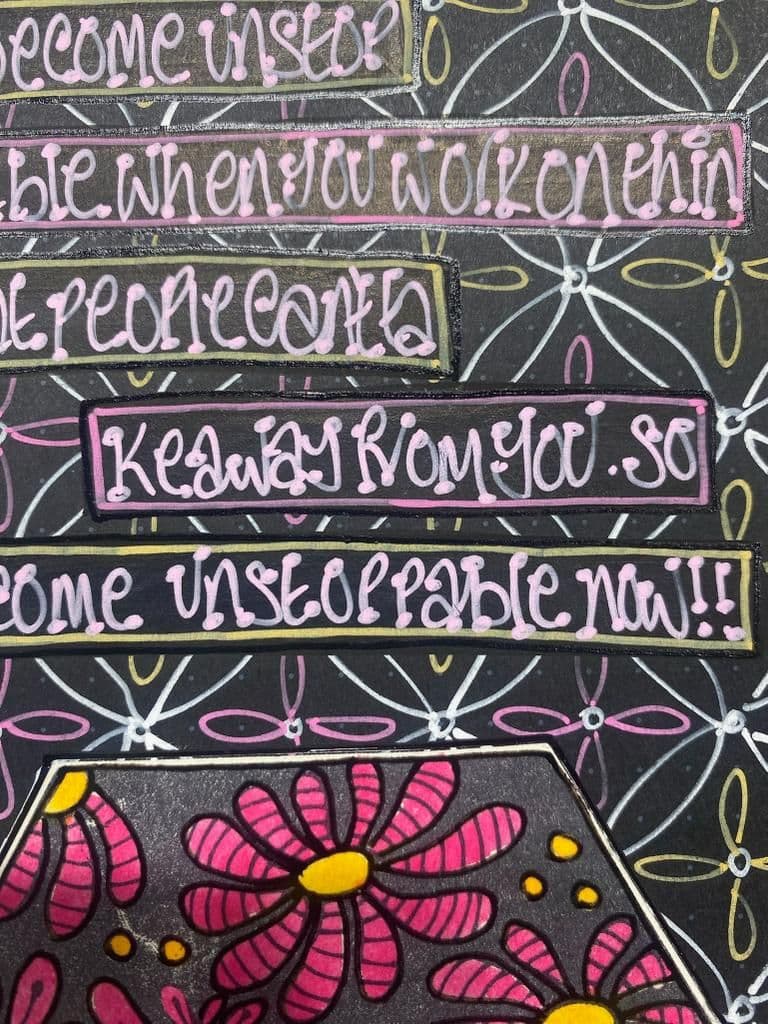 ecome unstop
ble when you work on thin
t people can't ta
ke away from you. so
come unstoppable now!!